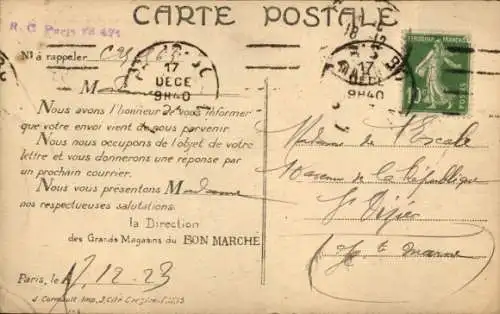 CARTE POSTALE
R. C. Paris
N! à rappeler
17
DECE
9H40
18-12
17
9H40
RÉPUBLIQUE FRANÇAISE
10c
POSTES
Madame
Nous avons l'honneur de vous informer
que votre envoi vient de nous parvenir.
Nous nous occupons de l'objet de votre
lettre et vous donnerons une réponse par
un prochain courrier.
Nous vous présentons Madame
nos respectueuses salutations.
la Direction
des Grands Magasins du BON MARCHÉ
Paris, le 17.12.23
Madame de l'Escale
avenue de la République
St Dizier
Hte Marne